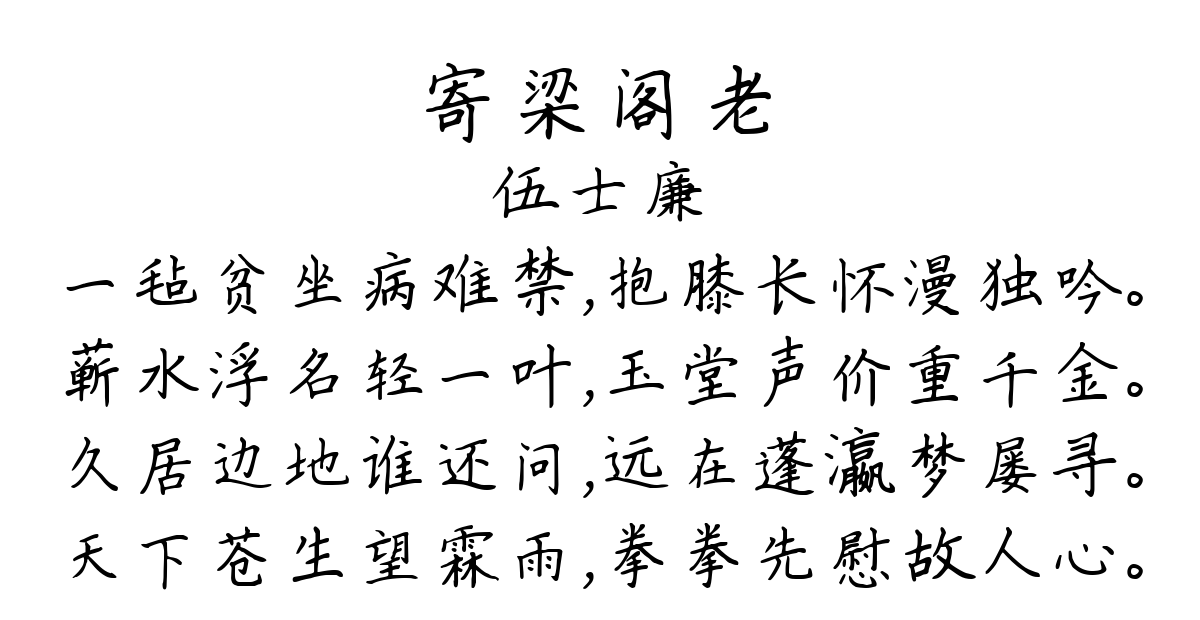 寄梁阁老
伍士廉
一毡贫坐病难禁,抱膝长怀漫独吟。
蕲水浮名轻一叶,玉堂声价重千金。
久居边地谁还问,远在蓬瀛梦屡寻。
天下苍生望霖雨,拳拳先慰故人心。